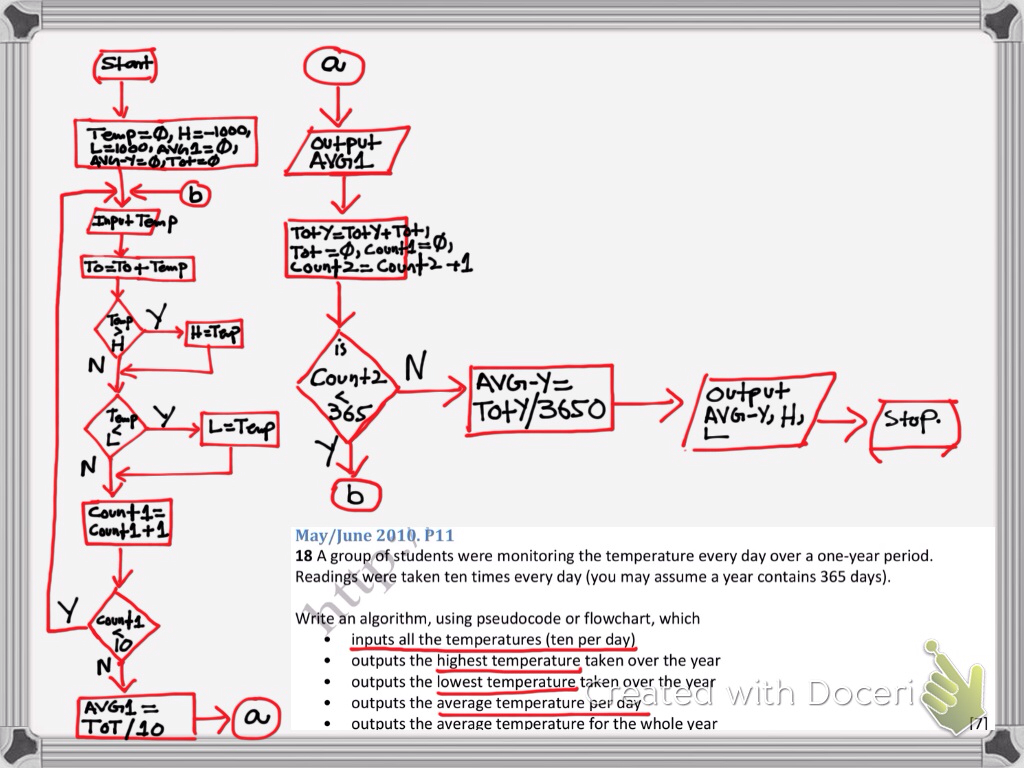 Start
Temp=0, H=-1000,
L=1000, AVG1=0,
AVG-Y=0, Tot=0
b
Input Temp
To=To+Temp
Temp
>
H
Y
H=Temp
N
Temp
<
L
Y
L=Temp
N
Count1=
Count1+1
Count1
<
10
Y
N
AVG1=
TOT/10
a
a
Output
AVG1
TotY=TotY+Tot,
Tot=0, Count1=0,
Count2=Count2+1
is
Count2
<
365
N
Y
b
AVG-Y=
TotY/3650
Output
AVG-Y, H,
L
Stop.
May/June 2010. P11
18 A group of students were monitoring the temperature every day over a one-year period.
Readings were taken ten times every day (you may assume a year contains 365 days).
http:/
Write an algorithm, using pseudocode or flowchart, which
• inputs all the temperatures (ten per day)
• outputs the highest temperature taken over the year
• outputs the lowest temperature taken over the year
• outputs the average temperature per day
• outputs the average temperature for the whole year
Created with Doceri
[7]